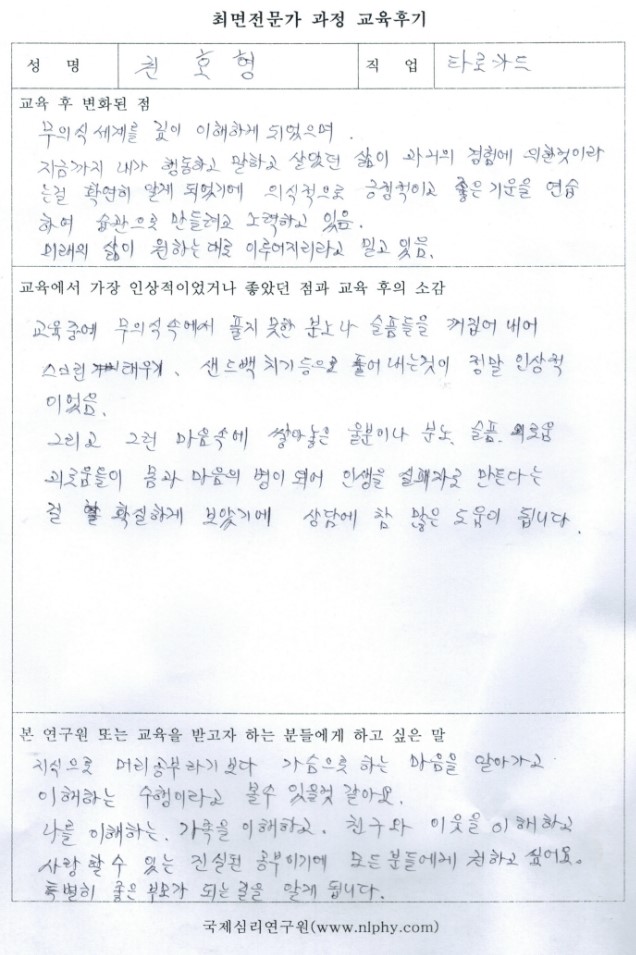 최면전문가 과정 교육후기
성 명 권호형 직 업 타로카드
교육 후 변화된 점
무의식세계를 깊이 이해하게 되었으며.
지금까지 내가 행동하고 말하고 살았던 삶이 과거의 경험에 의한것이라
는걸 확연히 알게 되었기에 의식적으로 긍정적이고 좋은기운을 연습
하여 습관으로 만들려고 노력하고 있음.
미래의 삶이 원하는대로 이루어지리라고 믿고 있음.
교육에서 가장 인상적이었거나 좋았던 점과 교육 후의 소감
교육중에 무의식속에서 풀지 못한 분노나 슬픔들을 끄집어 내어
스크린 태우기, 샌드백 치기등으로 풀어 내는것이 정말 인상적
이었음.
그리고 그런 마음속에 쌓아놓은 울분이나 분노, 슬픔,
괴로움들이 몸과 마음의 병이 되어 인생을 실패자로 만든다는
걸 확실하게 보았기에 상담에 참 많은 도움이 됩니다.
본 연구원 또는 교육을 받고자 하는 분들에게 하고 싶은 말
지식으로 머리공부하기보다 가슴으로 하는 마음을 알아가고
이해하는 수행이라고 볼수 있을것 같아요.
나를 이해하는, 가족을 이해하고, 친구와 이웃을 이해하고
사랑할수 있는 진실된 공부이기에 모든분들에게 권하고 싶어요.
특별히 좋은부모가 되는길을 알게 됩니다.
국제심리연구원(www.nlphy.com)